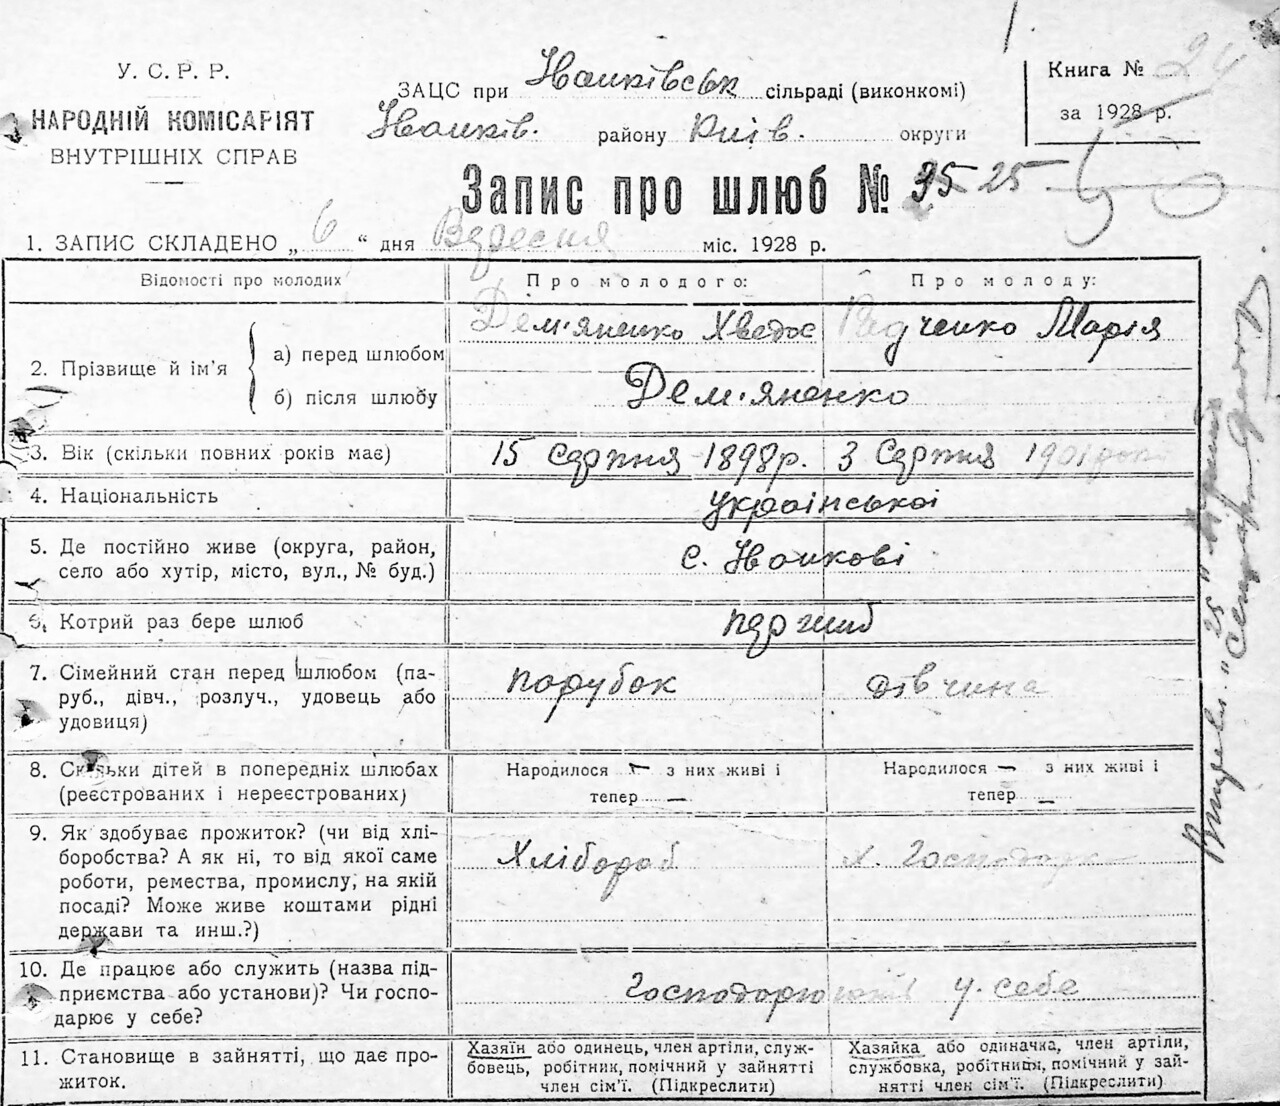 У. С. Р. Р.
НАРОДНІЙ КОМІСАРІЯТ
ВНУТРІШНІХ СПРАВ
ЗАЦС при Іванківськ сільраді (виконкомі)
Іванків. району Київ. округи
Книга № 24
за 1928 р.
Запис про шлюб № 25 25
1. ЗАПИС СКЛАДЕНО „ 6 “ дня Вересня міс. 1928 р.
Відомості про молодих
Про молодого:
Про молоду:
2. Прізвище й ім’я
а) перед шлюбом
Дем'яненко Хведос
Радченко Марія
б) після шлюбу
Дем'яненко
3. Вік (скільки повних років має)
15 Серпня 1898 р.
3 Серпня 1901 роки
4. Національність
української
5. Де постійно живе (округа, район,
село або хутір, місто, вул., № буд.)
с. Іванкові
6. Котрий раз бере шлюб
перший
7. Сімейний стан перед шлюбом (па-
руб., дівч., розлуч., удовець або
удовиця)
парубок
дівчина
8. Скільки дітей в попередніх шлюбах
(реєстрованих і нереєстрованих)
Народилося — з них живі і
тепер —
Народилося — з них живі і
тепер —
9. Як здобуває прожиток? (чи від хлі-
боробства? А як ні, то від якої саме
роботи, ремества, промислу, на якій
посаді? Може живе коштами рідні
держави та инш.?)
Хлібороб
х. Господарка
10. Де працює або служить (назва під-
приємства або установи)? Чи госпо-
дарює у себе?
Господарюють у себе
11. Становище в зайнятті, що дає про-
житок.
Хазяїн або одинець, член артіли, служ-
бовець, робітник, помічний у зайнятті
член сім’ї. (Підкреслити)
Хазяйка або одиначка, член артіли,
службовка, робітниця, помічний у зай-
нятті член сім’ї. (Підкреслити)
„25“